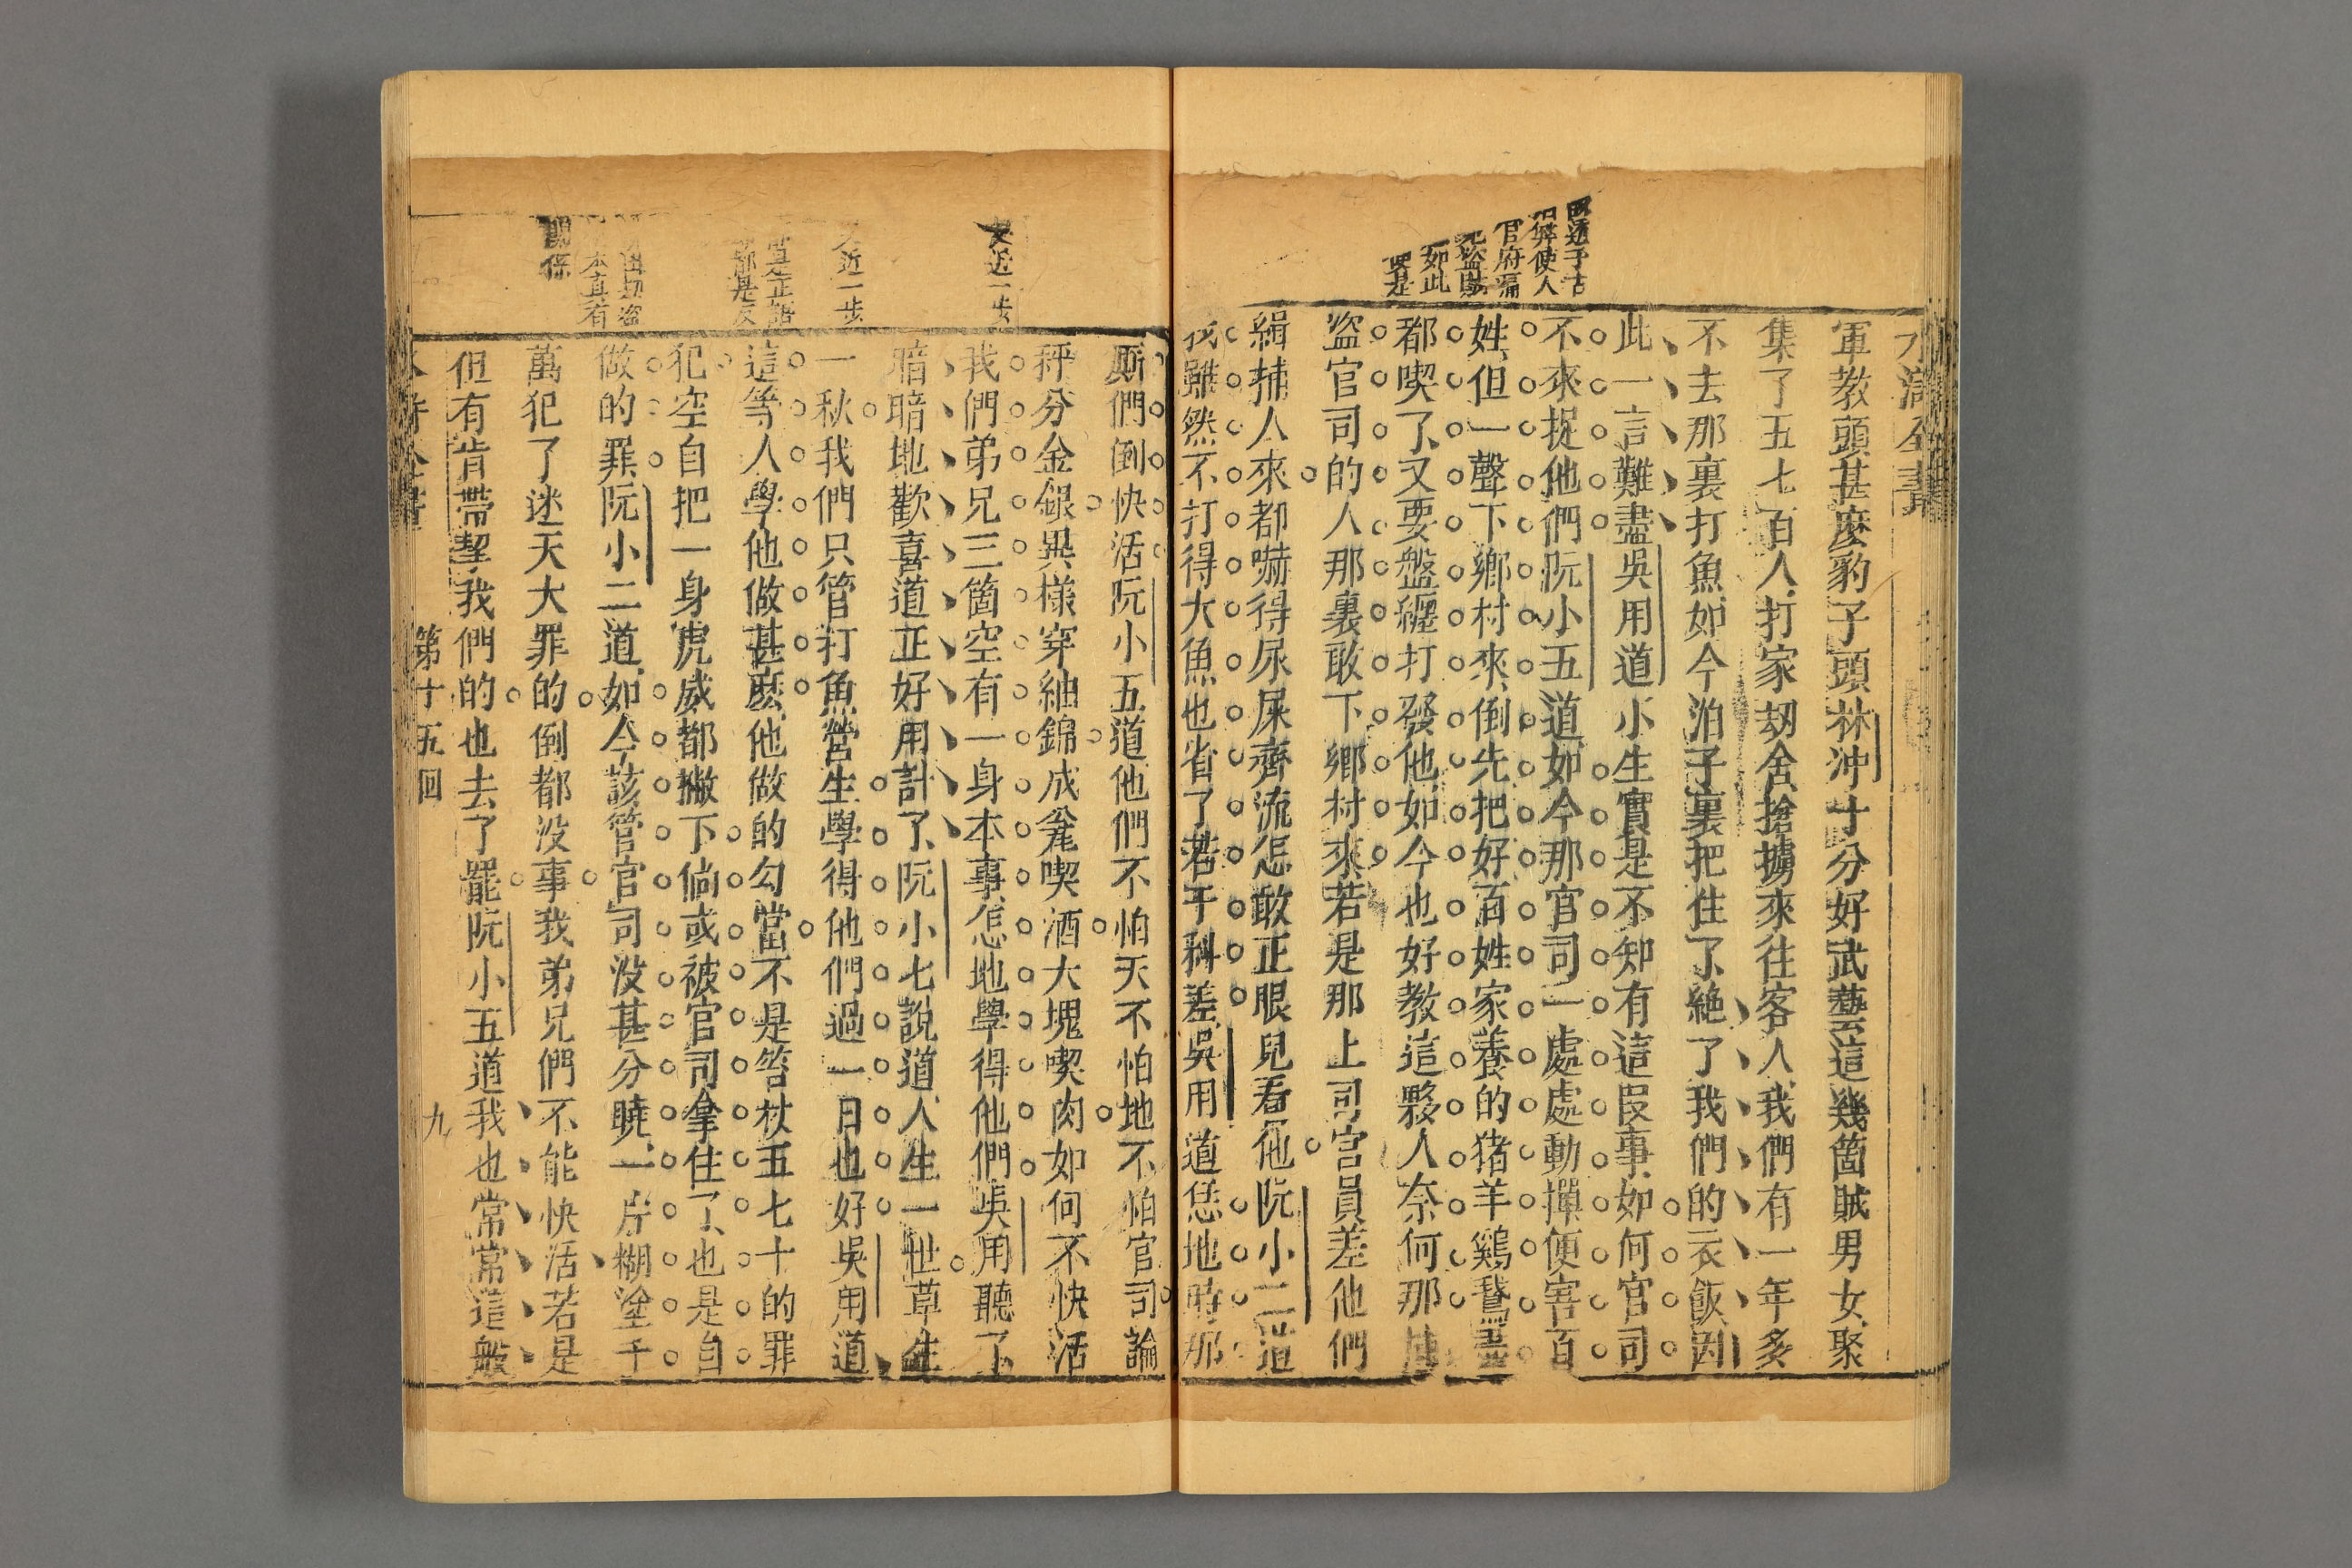 水滸全書
軍教頭甚麼豹子頭林沖十分好武藝這幾箇賊男女聚
集了五七百人打家刼舍搶擄來往客人我們有一年多
不去那裏打魚如今泊子裏把住了絶了我們的衣飯因
此一言難盡吳用道小生實是不知有這段事如何官司
不來捉他們阮小五道如今那官司一處處動撣便害百
姓但一聲下鄉村來倒先把好百姓家養的猪羊鷄鵞盡
都喫了又要盤纏打發他如今也好教這夥人奈何那
盜官司的人那裏敢下鄉村來若是那上司官員差他們
緝捕人來都嚇得尿屎齊流怎敢正眼兒看他阮小二道
我雖然不打得大魚也省了若干科差吳用道恁地時那
官府
如此
厮們倒快活阮小五道他們不怕天不怕地不怕官司論
秤分金銀異樣穿紬錦成瓮喫酒大塊喫肉如何不快活
我們弟兄三箇空有一身本事怎地學得他們吳用聽了
暗暗地歡喜道正好用計了阮小七說道人生一世草生
一秋我們只管打魚營生學得他們過一日也好吳用道
這等人學他做甚麽他做的勾當不是笞杖五七十的罪
犯空自把一身虎威都撇下倘或被官司拿住了也是自
做的罪阮小二道如今該管官司没甚分曉一片糊塗千
萬犯了迷天大罪的倒都没事我弟兄們不能快活若是
但有肯帶挈我們的也去了罷阮小五道我也常常這般
又近一步
近一步
第十五回
九